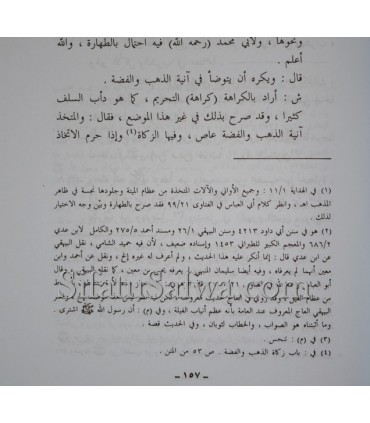 ونحوها، ولأبي محمد (رحمه الله) فيه احتمال بالطهارة، والله
أعلم .
قال : ويكره أن يتوضأ في آنية الذهب والفضة .
ش : أراد بالكراهة (كراهة) التحريم، كما هو دأب السلف
كثيرا ، وقد صرح بذلك في غير هذا الموضع، فقال : والمتخذ
آنية الذهب والفضة عاص، وفيها الزكاة(٤) وإذا حرم الاتخاذ
(١) في الهداية ١١/١ : وجميع الأواني والآلات المتخذة من عظام الميتة وجلودها نجسة في ظاهر
المذهب اهـ ، وانظر كلام أبي العباس في الفتاوى ٩٩/٢١ فقد صرح بالطهارة وبين وجه الاختيار
لذلك .
(٢) هو في سنن أبي داود ٤٢١٣ وسنن البيهقي ٢٦/١ ومسند أحمد ٢٧٥/٥ والكامل لابن عدي
٦٨٦/٢ والمعجم الكبير للطبراني ١٤٥٣ وإسناده ضعيف، لأن فيه حميد الشامي ، نقل البيهقي
عن ابن عدي قال : إنما أنكر عليه هذا الحديث ، ولم أعرف له غيره إلخ ، ونقل عن أحمد وابن
معين أنهما لم يعرفاه ، وفيه أيضا سليمان المنبهي ، لم يعرفه يحيى بن معين ، كما نقله البيهقي ، وقال
البيهقي العاج المعروف عند العامة بأنه عظم أنياب الفيلة ، وفي (م) : أن رسول الله ﷺ اشترى .
وما أثبتناه هو الصواب ، والخطاب لثوبان ، وفي الحديث قصة .
(٣) في (م) : تنجس .
(٤) في : باب زكاة الذهب والفضة . ص ٥٣ من المتن .
- ١٥٧ -